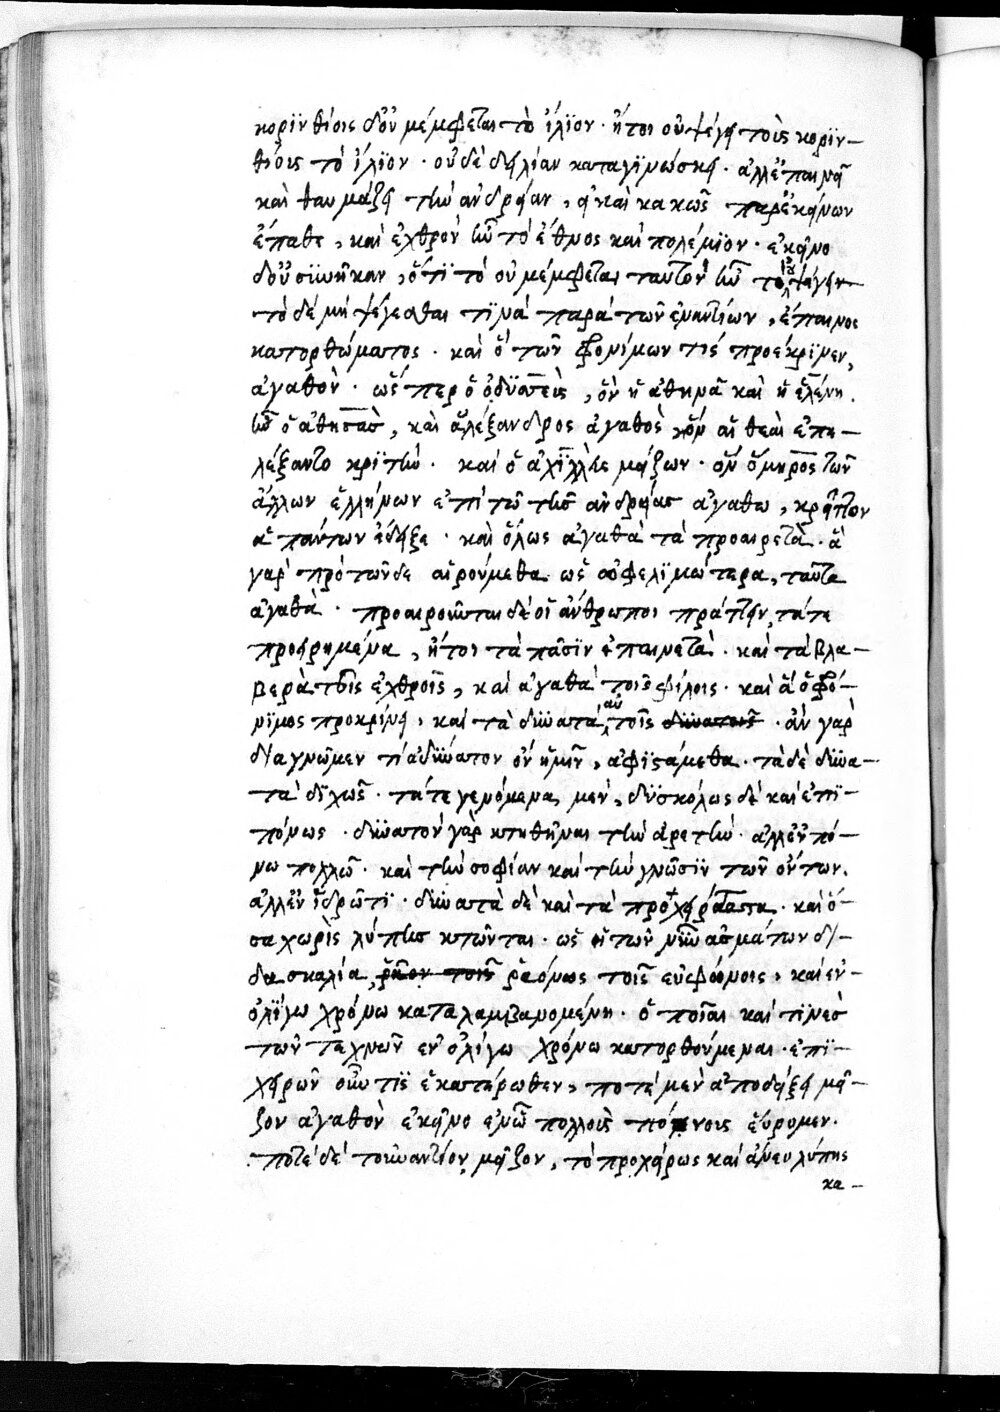 κορϊνθίοις δ' οὐ μέμφεται τὸ ἴλϊον· ἤτοι οὐ ψέγει τοὺς κορϊν–
θίοις τὸ ἴλϊον· οὐδὲ δειλίαν καταγϊνώσκει· ἀλλ' ἐπαινεῖ
καὶ θαυμάζει τὴν ἀνδρείαν, εἰ καὶ κακῶς παρ' ἐκείνων
ἔπαθε, καὶ ἐχθρὸν ἦν τὸ ἔθνος καὶ πολέμϊον· ἐκεῖνο
δ' οὐ συνῆκαν, ὅτϊ τὸ οὐ μέμφεται ταυτὸν ἦν τῶ οὐ ψέγειν
τὸ δὲ μὴ ψέγεσθαι τϊνὰ παρὰ τῶν ἐναντίων, ἔπαινος
κατορθώματος· καὶ ὅ τῶν φρονίμων τίς προέκρϊνεν,
ἀγαθὸν· ὥσπερ ὁ ὀδϋσσεὺς, ὃν ἡ ἀθηνᾶ καὶ ἡ ἑλένη.
ἦν ὁ ἀθησεὺς, καὶ ἀλέξανδρος ἀγαθὸς ὃν αἱ θεαὶ ἐπε–
λέξαντο κρϊτὴν· καὶ ὁ ἀχϊλλεὺς μείζων· ὃν ὅμηρος τῶν
ἄλλων ἑλλήνων ἐπὶ τῶ τῆς ἀνδρείας ἀγαθω, κρεῖττον
α πάντων ἔδειξε· καὶ ὅλως ἀγαθὰ τὰ προαιρετὰ· ἃ
γὰρ πρὸ τῶνδε αἱρούμεθα ὡς ὠφελϊμώτερα, ταῦτα
ἀγαθὰ· προαιροῦνται δὲ οἱ ἄνθρωποι πράττειν, τά τε
προειρημένα, ἤτοι τὰ πᾶσϊν ἐπαινετὰ· καὶ τὰ βλα–
βερὰ τοῖς ἐχθροῖς, καὶ ἀγαθὰ τοῖς φίλοις· καὶ ἃ ὁ φρό–
νϊμος προκρίνει, καὶ τὰ δυνατὰ αὐτοῖς δυνατοῖς· ἂν γὰρ
διαγνῶμεν τὶ ἀδύνατον ὂν ἡμῖν, ἀφϊστάμεθα· τὰ δὲ δυνα–
τὰ δϊχῶς· τά τε γενόμενα μὲν, δϋσκόλως δὲ καὶ ἐπϊ–
πόνως· δυνατὸν γὰρ κτηθῆναι τὴν ἀρετὴν· ἀλλ' ἐν πό–
νω πολλῶ· καὶ τὴν σοφίαν καὶ τὴν γνῶσϊν τῶν ὄντων.
ἀλλ' ἐν ἱδρῶτϊ· δυνατὰ δὲ καὶ τὰ προχειρότατα· καὶ ὅ–
σα χωρὶς λύπης κτῶνται· ὡς ἡ τῶν μηνυασμάτων δι–
δασκαλία, ῥᾷον τοῖς ῥᾳδίως τοῖς εὐφώνοις, καὶ ἐν
ὀλϊγω χρόνω καταλαμβανομένη· ὁποῖαι καὶ τϊνὲς
τῶν τεχνῶν ἐν ὀλίγω χρόνω κατορθούμεναι· ἐπϊ–
χειρῶν οὖν τϊς ἑκατέρωθεν, ποτὲ μὲν ἀποδείξει μεῖ–
ζον ἀγαθὸν ἐκεῖνο ἐν ᾧ πολλοῖς πόνοις εὕρομεν.
ποτὲ δὲ τοὐναντίον, μεῖζον, τὸ προχείρως καὶ ἄνευ λύπης
κα–